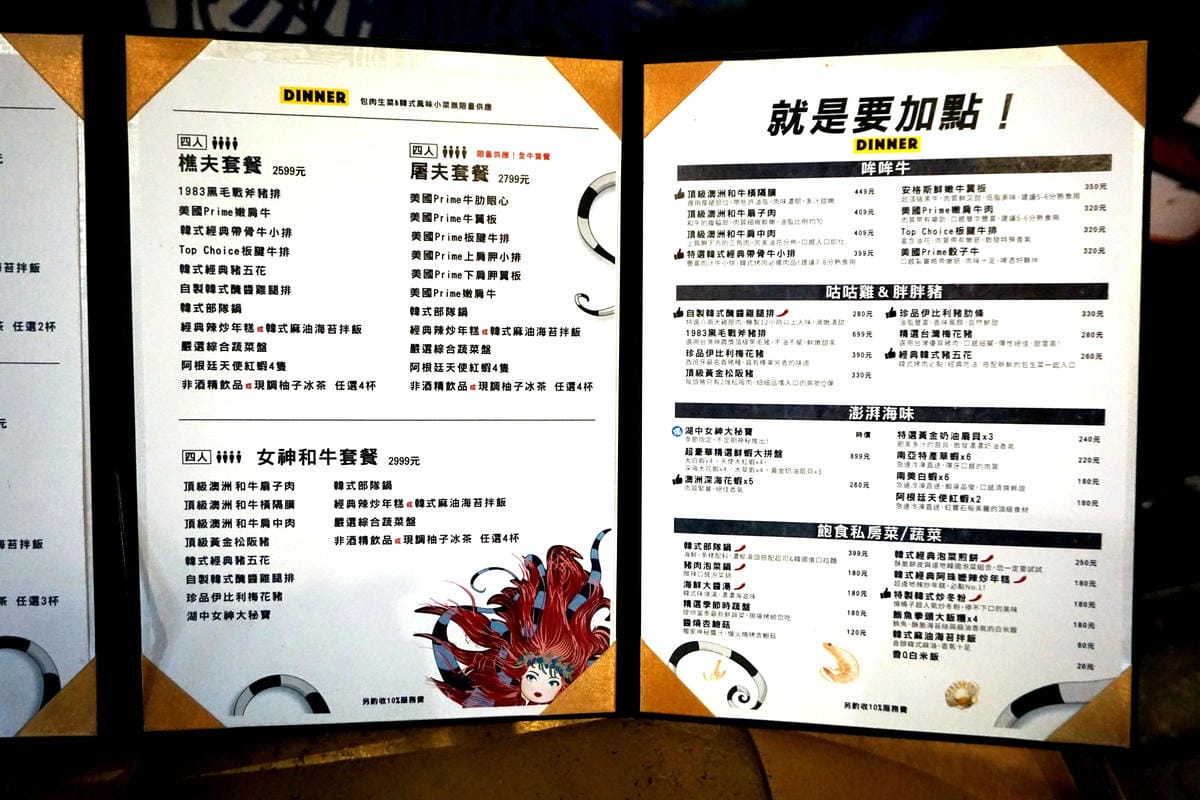 苔拌飯
茶 任選2杯
元
海苔拌飯
茶 任選3杯
DINNER 包肉生菜&韓式風味小菜無限量供應
四人
樵夫套餐 2599元
1983黑毛戰斧豬排
美國Prime嫩肩牛
韓式經典帶骨牛小排
Top Choice板腱牛排
韓式經典豬五花
自製韓式醜醬雞腿排
韓式部隊鍋
經典辣炒年糕或韓式麻油海苔拌飯
嚴選綜合蔬菜盤
阿根廷天使紅蝦4隻
非酒精飲品或現調柚子冰茶 任選4杯
四人 限量供應！全牛套餐
屠夫套餐 2799元
美國Prime牛肋眼心
美國Prime牛翼板
美國Prime板腱牛排
美國Prime上肩胛小排
美國Prime下肩胛翼板
美國Prime嫩肩牛
韓式部隊鍋
經典辣炒年糕或韓式麻油海苔拌飯
嚴選綜合蔬菜盤
阿根廷天使紅蝦4隻
非酒精飲品或現調柚子冰茶 任選4杯
四人 女神和牛套餐 2999元
頂級澳洲和牛扇子肉
頂級澳洲和牛橫隔膈
頂級澳洲和牛肩中肉
頂級黃金松阪豬
韓式經典豬五花
自製韓式醜醬雞腿排
珍品伊比利梅花豬
湖中女神大秘寶
韓式部隊鍋
經典辣炒年糕或韓式麻油海苔拌飯
嚴選綜合蔬菜盤
非酒精飲品或現調柚子冰茶 任選4杯
另酌收10%服務費
就是要加點！
DINNER
哞哞牛
頂級澳洲和牛橫隔膈 449元
頂級澳洲和牛扇子肉 409元
頂級澳洲和牛肩中肉 409元
特選韓式經典帶骨牛小排 399元
安格斯鮮嫩牛翼板 350元
美國Prime嫩肩牛肉 320元
Top Choice板腱牛 320元
美國Prime骰子牛 320元
咕咕雞&胖胖豬
自製韓式醜醬雞腿排 280元
1983黑毛戰斧豬排 699元
珍品伊比利梅花豬 390元
頂級黃金松阪豬 330元
珍品伊比利豬肋條 330元
精選台灣梅花豬 280元
經典韓式豬五花 260元
澎湃海味
湖中女神大秘寶 時價
季節限定，不定期神秘推出！
超豪華精選鮮蝦大拼盤 899元
澳洲深海花蝦x5 260元
特選黃金奶油扇貝x3 240元
南亞特產草蝦x6 220元
南美白蝦x6 180元
阿根廷天使紅蝦x2 180元
飽食私房菜/蔬菜
韓式部隊鍋 399元
豬肉泡菜鍋 180元
海鮮大醬湯 180元
精選季節時蔬盤 180元
醬燒杏鮑菇 120元
韓式經典泡菜煎餅 250元
韓式經典阿珠嬤辣炒年糕 180元
特製韓式炒冬粉 180元
鮪魚拳頭大飯糰x4 180元
韓式麻油海苔拌飯 80元
香Q白米飯 20元
另酌收10%服務費